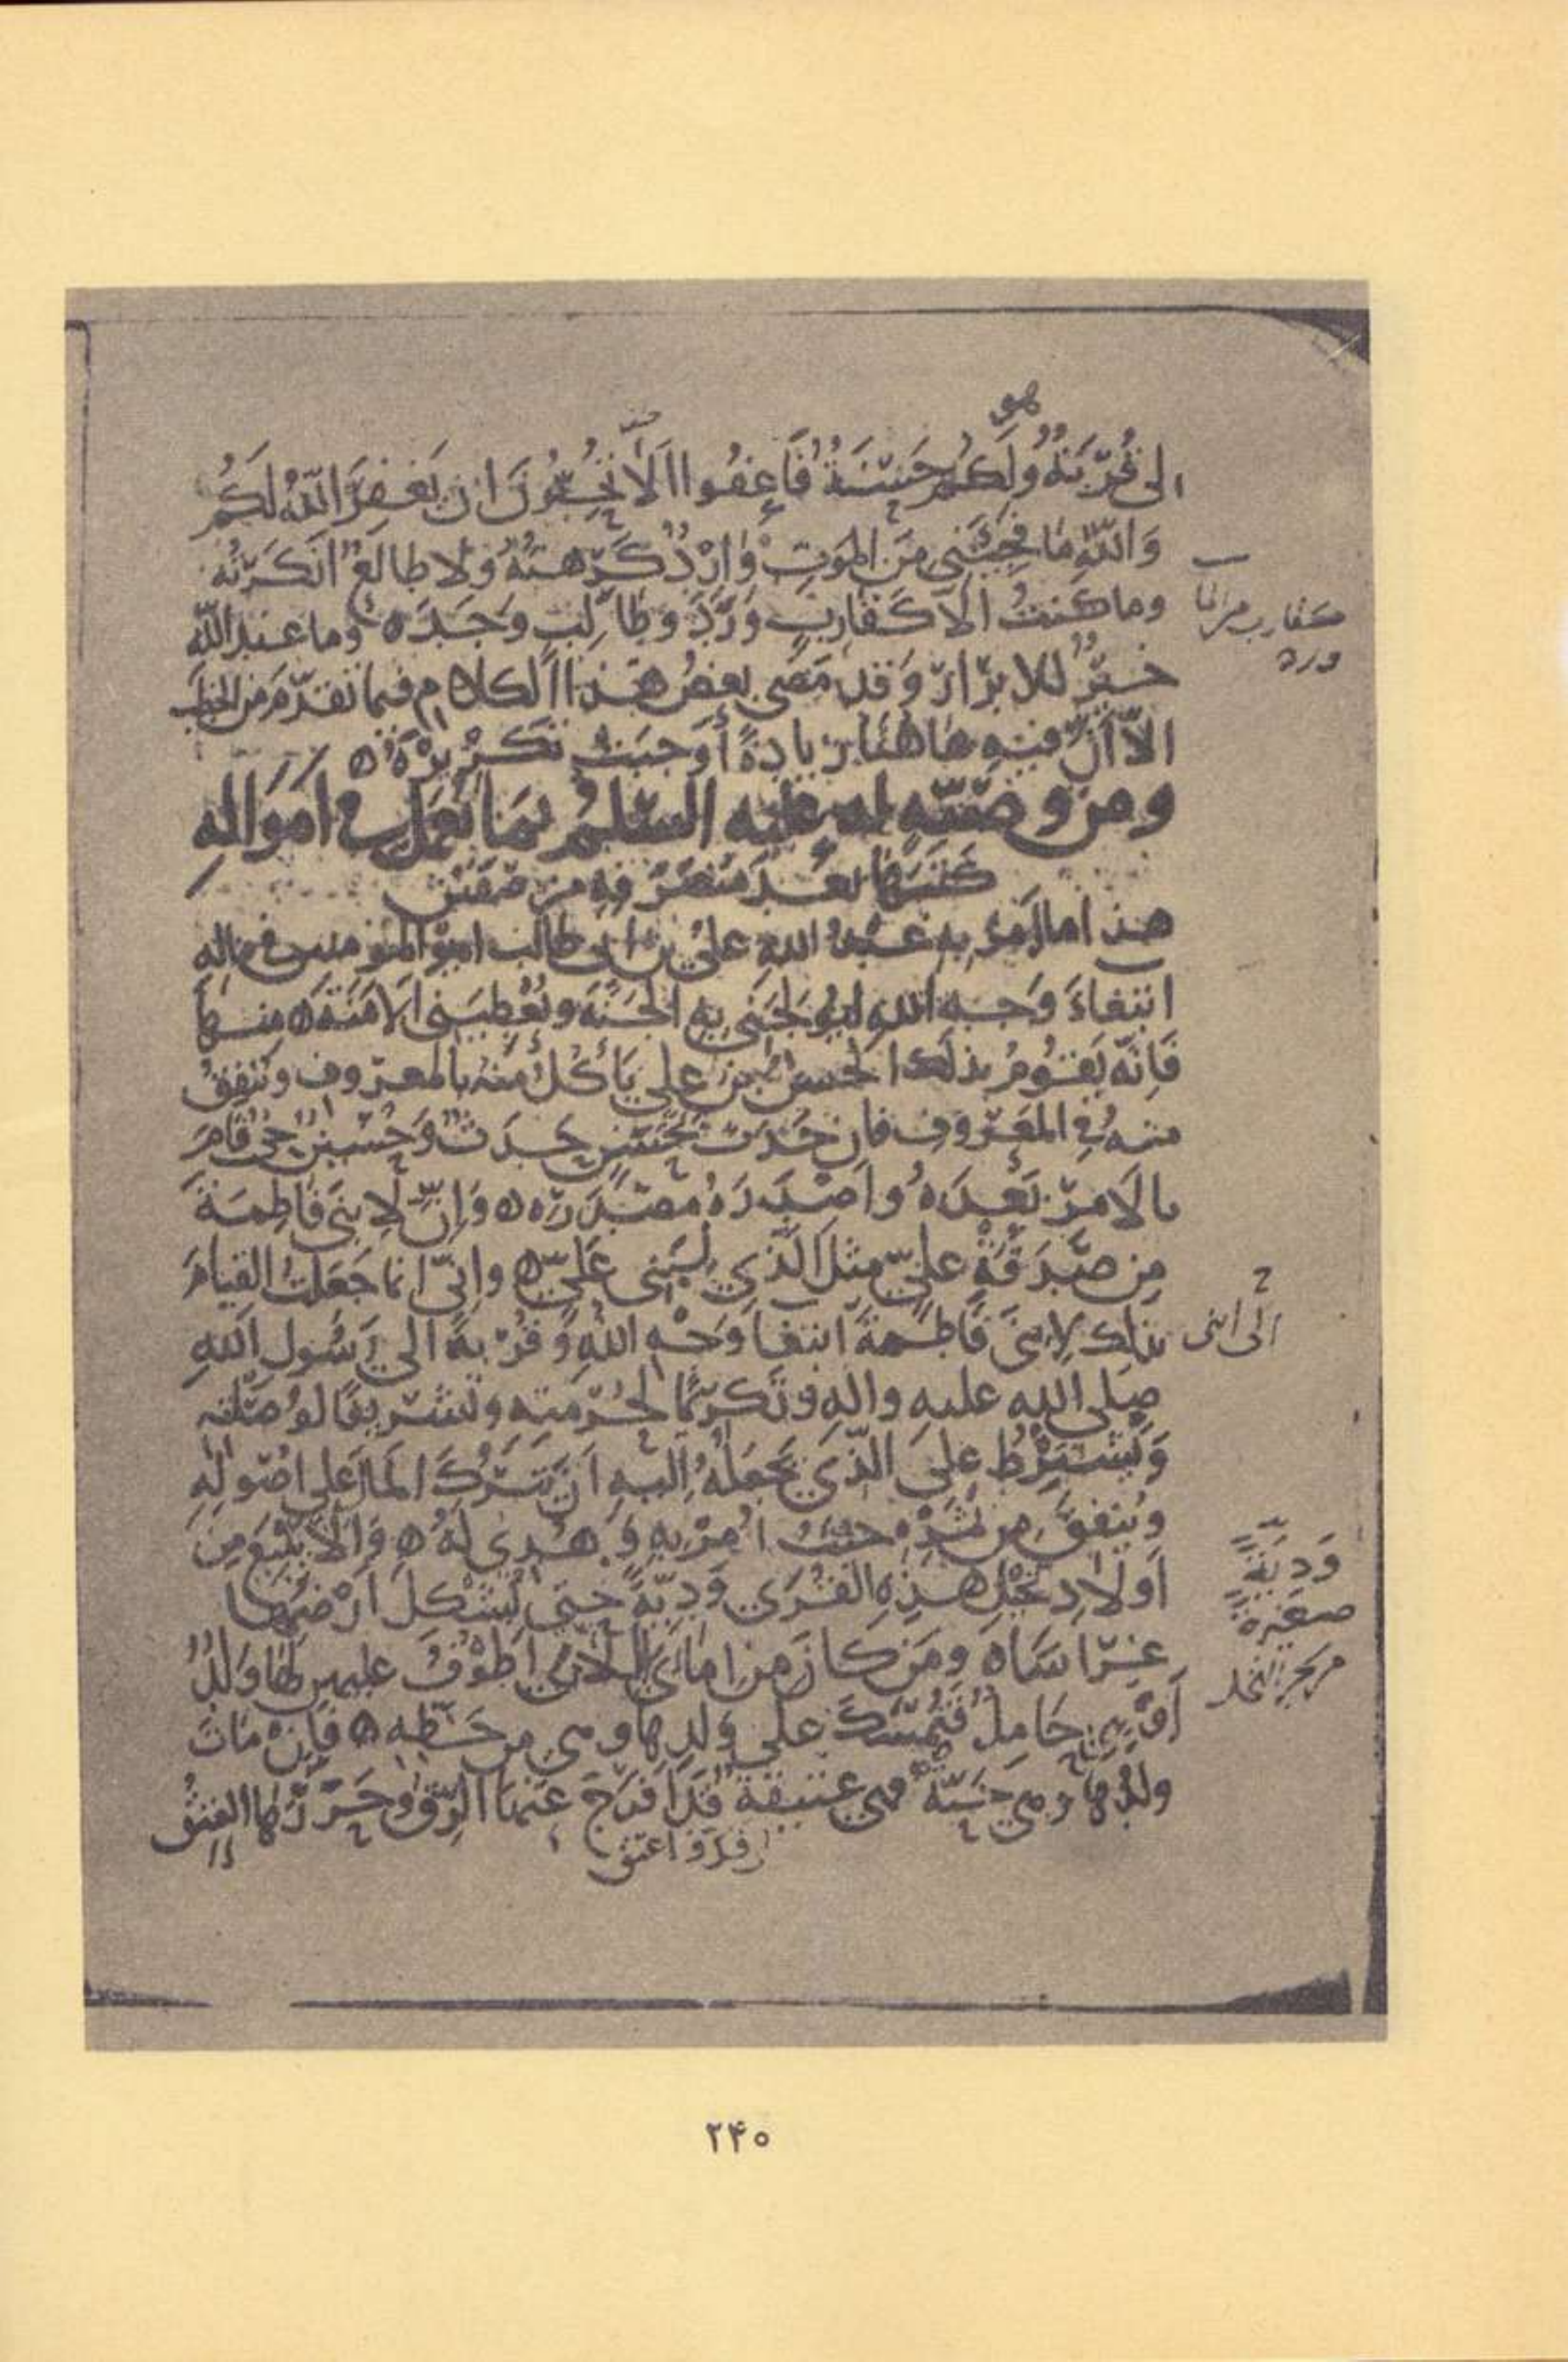 هو
لى قُرْبَةٌ وَلَكُمْ حَسَنَةٌ فَاعفُوا اَلَا تُحِبُّونَ ان يَغفِرَ اللّٰهُ لَكُمْ
وَاللّٰهِ مَا فَجِئَنى مِنَ الموَتِ وَارِدٌ كَرِهتُهُ وَلا طالعٌ انكَرتُه
وما كنتُ الّا كَقَارِبٍ وَرَدَ وَطَالِبٍ وَجَدَ ه وما عند اللّه
كقارب من الماء
ورده
خيرٌ للابرَارِ وَقد مَضى بعضُ هذا الكلام فيما تقدّمَ من الخطب
الّا اَنّ فيه هَاهُنَا زيادةً أَوجبَت تكريرَهُ ه
ومن وصيّته له عليه السّلم بمَا يُعمَل في اَموَالهِ
كتبَها بعدَ مُنصَرَفهِ من صفّين
هذا ما اَمرَ به عبدُ اللهِ علىُ بن ابى طالب امير المومنين في ماله
ابتغاءَ وَجه اللهِ ليُولجَنى به الجنّةَ ويُعْطِيَنى الاَمَنَةَ ه منها
فَانّه يَقُومُ بذلك الحسن بن على يَأكُلُ مِنهُ بالمعروف وينفِقُ
منه في المَعروف فان حَدَثَ بحَسَنٍ حَدَثٌ وَحُسَينٌ حىٌ قامَ
بالامرِ بَعدَهُ واَصْدَرَهُ مصدَرَه ه وَاِنّ لابنَى فَاطِمَةَ
مِن صَدَقَةِ علىٍّ مثلَ الّذي لبَنى عَلىّ ه وانّى انما جَعَلتُ القيامَ
بذلك لابنَى فاطمةَ ابتغا وَجْهِ اللهِ وَقُرْبَةً الى رَسُول اللهِ
الى ابنى
صلى الله عليه واله وَتَكريمًا لحُرْمتِه وتَشريفًا لوُصلته
وَيَشترِطُ علىَ الّذي يَجعَلُهُ اليه اَن يَترُكَ المالَ على اصُولهِ
وَيُنفقَ من ثمَرِه حيثُ اُمِرَ بهِ وَهُدِىَ لَهُ ه وَالّا يَبيعَ مِن
اَولادِ نخلِ هذِهِ القُرَى وَدِيّةً حتى تُشكِلَ اَرْضُهَا
وَدِيّةً
صغيرةً
من النخل
غِرَاسًا ه ومَن كانَ من امَائى اللاتى اَطوفُ عليهن لها وَلدٌ
اَو هى حَامِلٌ فتُمسَكُ على وَلدِها وهى من حَظّهِ ه فَاِن مَاتَ
ولدُها وهى حَيّةٌ فهى عتيقةٌ قد اَفرَجَ عَنها الرّقُّ وَحَرَّرَها العِتقُ
۲۴۰